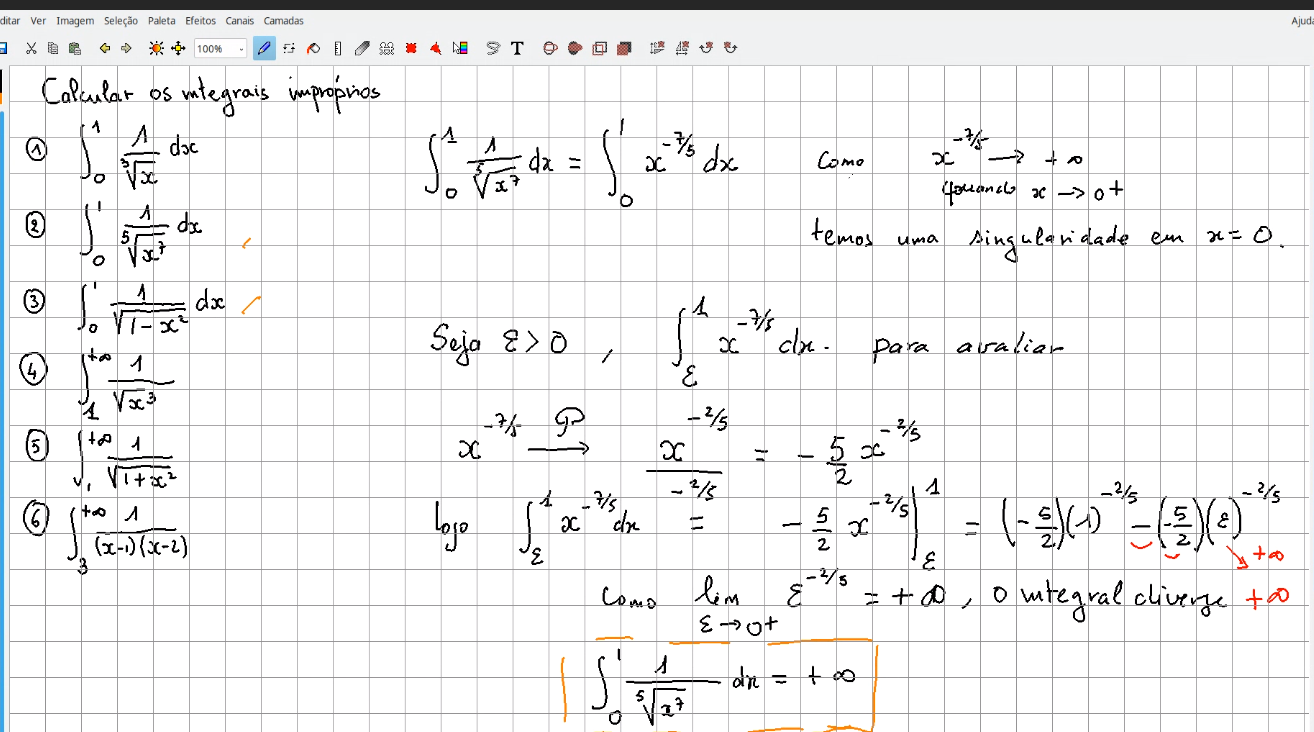 ditar Ver Imagem Seleção Paleta Efeitos Canais Camadas Ajuda
100%
Calcular os integrais impróprios
① ∫₀¹ 1/∛x dx
② ∫₀¹ 1/⁵√x⁷ dx
③ ∫₀¹ 1/√(1-x²) dx
④ ∫₁^{+∞} 1/√x³
⑤ ∫₁^{+∞} 1/√(1+x²)
⑥ ∫₃^{+∞} 1/((x-1)(x-2))
∫₀¹ 1/⁵√x⁷ dx = ∫₀¹ x^{-7/5} dx como x^{-7/5} → +∞
quando x → 0+
temos uma singularidade em x = 0.
Seja ε > 0, ∫_ε^1 x^{-7/5} dx. para avaliar
x^{-7/5} →^P x^{-2/5}/(-2/5) = -5/2 x^{-2/5}
logo ∫_ε^1 x^{-7/5} dx = -5/2 x^{-2/5} |_ε^1 = (-5/2)(1)^{-2/5} - (-5/2)(ε)^{-2/5}
+∞
como lim_{ε→0+} ε^{-2/5} = +∞, o integral diverge +∞
∫₀¹ 1/⁵√x⁷ dx = +∞